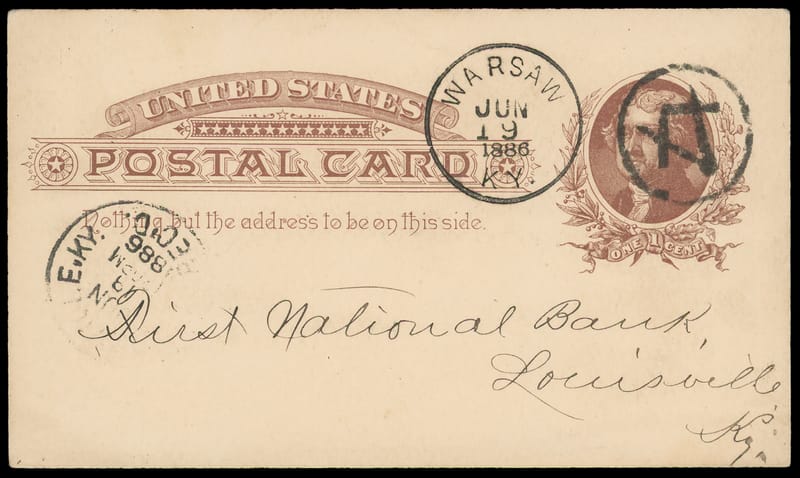 UNITED STATES
POSTAL CARD
Nothing but the address to be on this side.
WARSAW
JUN
19
1886
KY.
A
ONE 1 CENT
E, KY.
First National Bank,
Louisville
Ky.